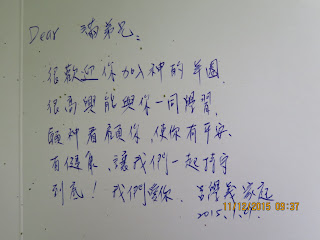 Dear 滿弟兄:
很歡迎你加入神的羊圈,
很高興能與你一同學習,
願神看顧你,使你有平安、
有健康、讓我們一起持守
到底! 我們愛你, 家庭
2015.
11/13/2015 09:37